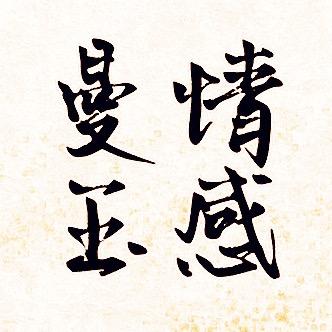 情感
曼玉